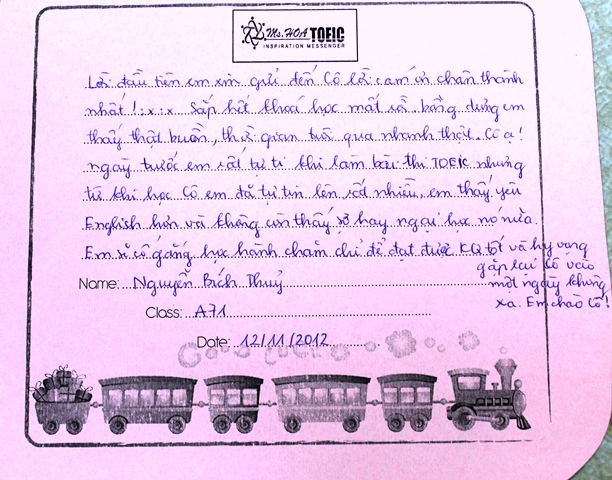 Ms. HOA TOEIC
INSPIRATION MESSENGER
Lời đầu tiên em xin gửi đến Cô lời cảm ơn chân thành
nhất ! :x :x Sắp hết khoá học mất rồi, bỗng dưng em
thấy thật buồn, thời gian trôi qua nhanh thật. Cô ạ!
ngày trước em rất tự ti khi làm bài thi TOEIC nhưng
từ khi học Cô em đã tự tin lên rất nhiều, em thấy yêu
English hơn và không còn thấy sợ hay ngại học nó nữa.
Em sẽ cố gắng học hành chăm chỉ để đạt được KQ tốt và hy vọng
gặp lại Cô vào
một ngày không
xa. Em chào Cô!
Name: Nguyễn Bích Thuỷ
Class: A71
Date: 12/11/2012
Good luck